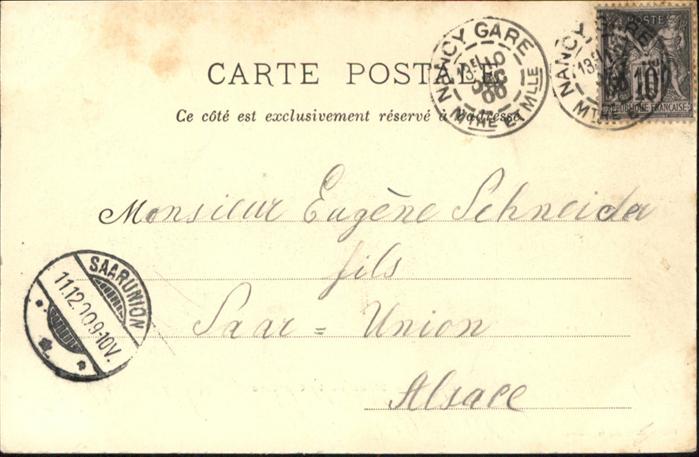 CARTE POSTALE
Ce côté est exclusivement réservé à l'adresse
NANCY GARE
10
DEC
00
MTHE ET MLLE
NANCY
POSTE
10
REPUBLIQUE FRANÇAISE
MTHE
Monsieur Eugène Schneider
fils
Saar=Union
Alsace
SAARUNION
11.12.00.9-10V.